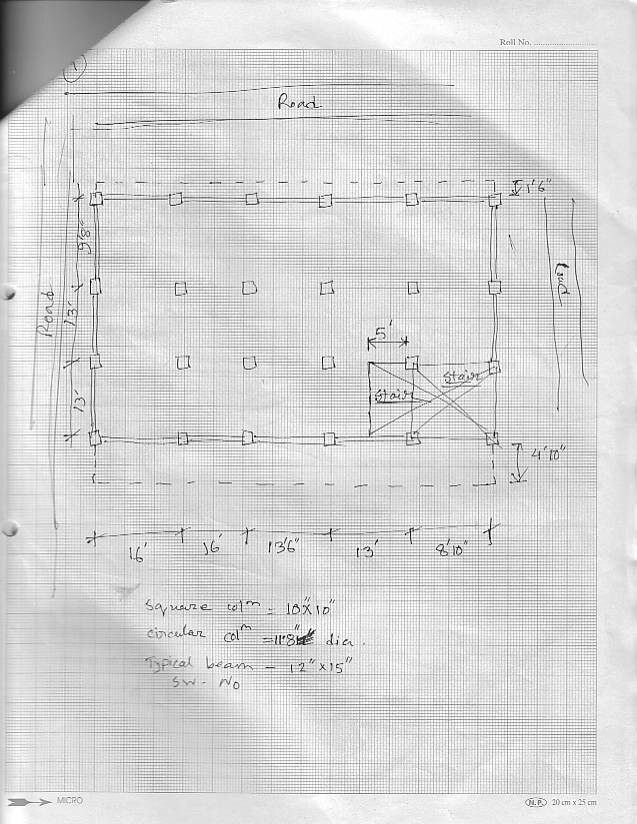 Roll No.
1
Road
1'6"
9'8"
Road
Road
13'
5'
stair
stair
13'
4'10"
16'
16'
13'6"
13'
8'10"
Square colm = 10"X10"
circular colm = 11"8" dia.
Typical beam - 12"x15"
SW - No
MICRO
N.P. 20 cm x 25 cm